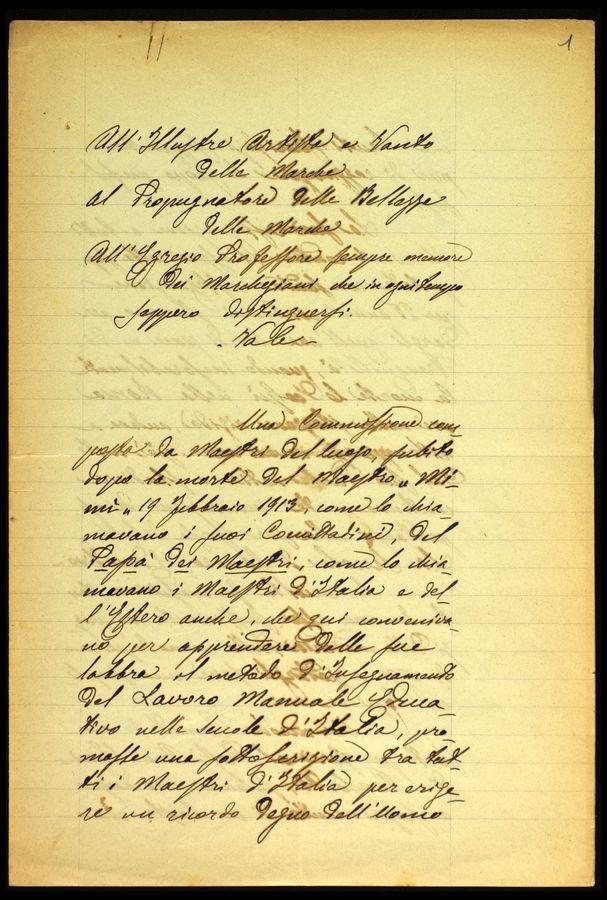 1
All'Illustre Artista e Vanto
delle Marche
al Propugnatore delle Bellezze
delle Marche
All'Egregio Professore sempre memore
Dei Marchegiani che in ogni tempo
seppero distinguersi.
Vale
Una Commissione com
posta da Maestri del luogo, subito
dopo la morte del Maestro „Mi-
mì„ 19 Febbraio 1913, come lo chia-
mavano i suoi Concittadini, del
Papà dei Maestri, come lo chia
mavano i Maestri d'Italia e del
l'Estero anche, che qui conveniva-
no per apprendere dalle sue
labbra il metodo d'Insegnamento
del Lavoro Manuale Educa
tivo nelle scuole d'Italia, pro
mosse una sottoscrizione tra tut-
ti i Maestri d'Italia per erige-
re un ricordo degno dell'Uomo